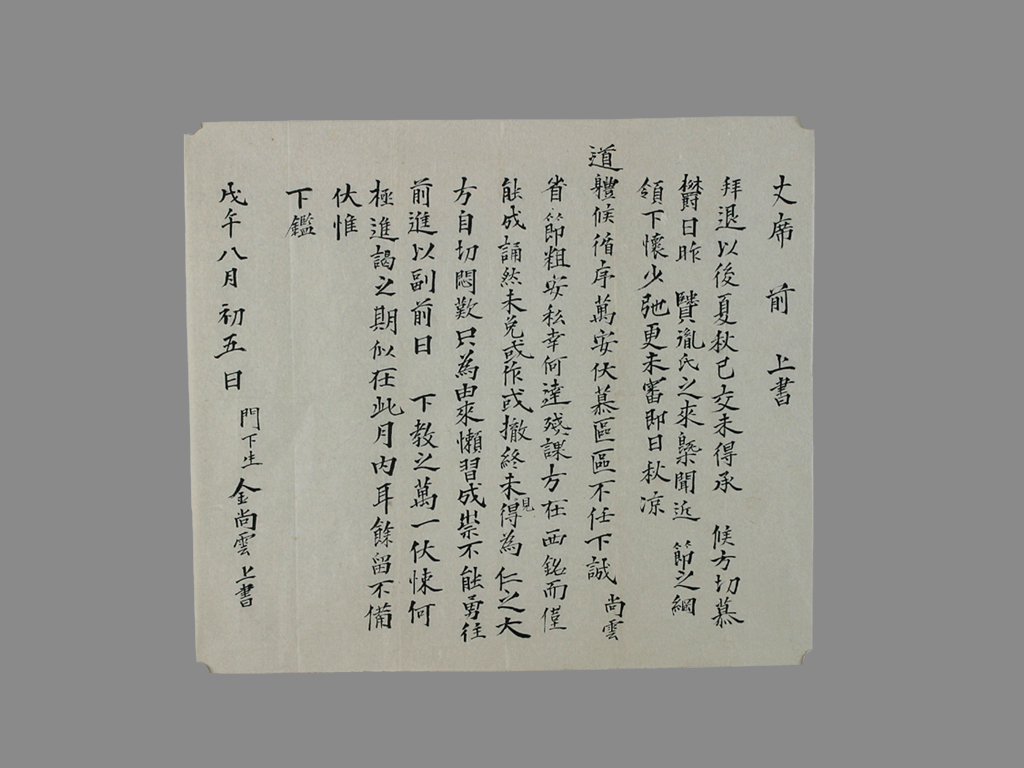 丈席 前 上書
拜退以後夏秋已交未得承 候方切慕
欝日昨 賢胤氏之來槩聞近 節之綱
領下懷少弛更未審即日秋凉
道體候循序萬安伏慕區區不任下誠 尚雲
省節粗安私幸何達殘課方在 西銘而僅
能成誦然未免或作或撤終未見得為 仁之大
方自切悶歎只為由來懶習成祟不能勇往
前進以副前日 下教之萬一伏悚何
極進謁之期似在此月內耳餘留不備
伏惟
下鑑
戊午八月初五日 門下生 金尚雲 上書